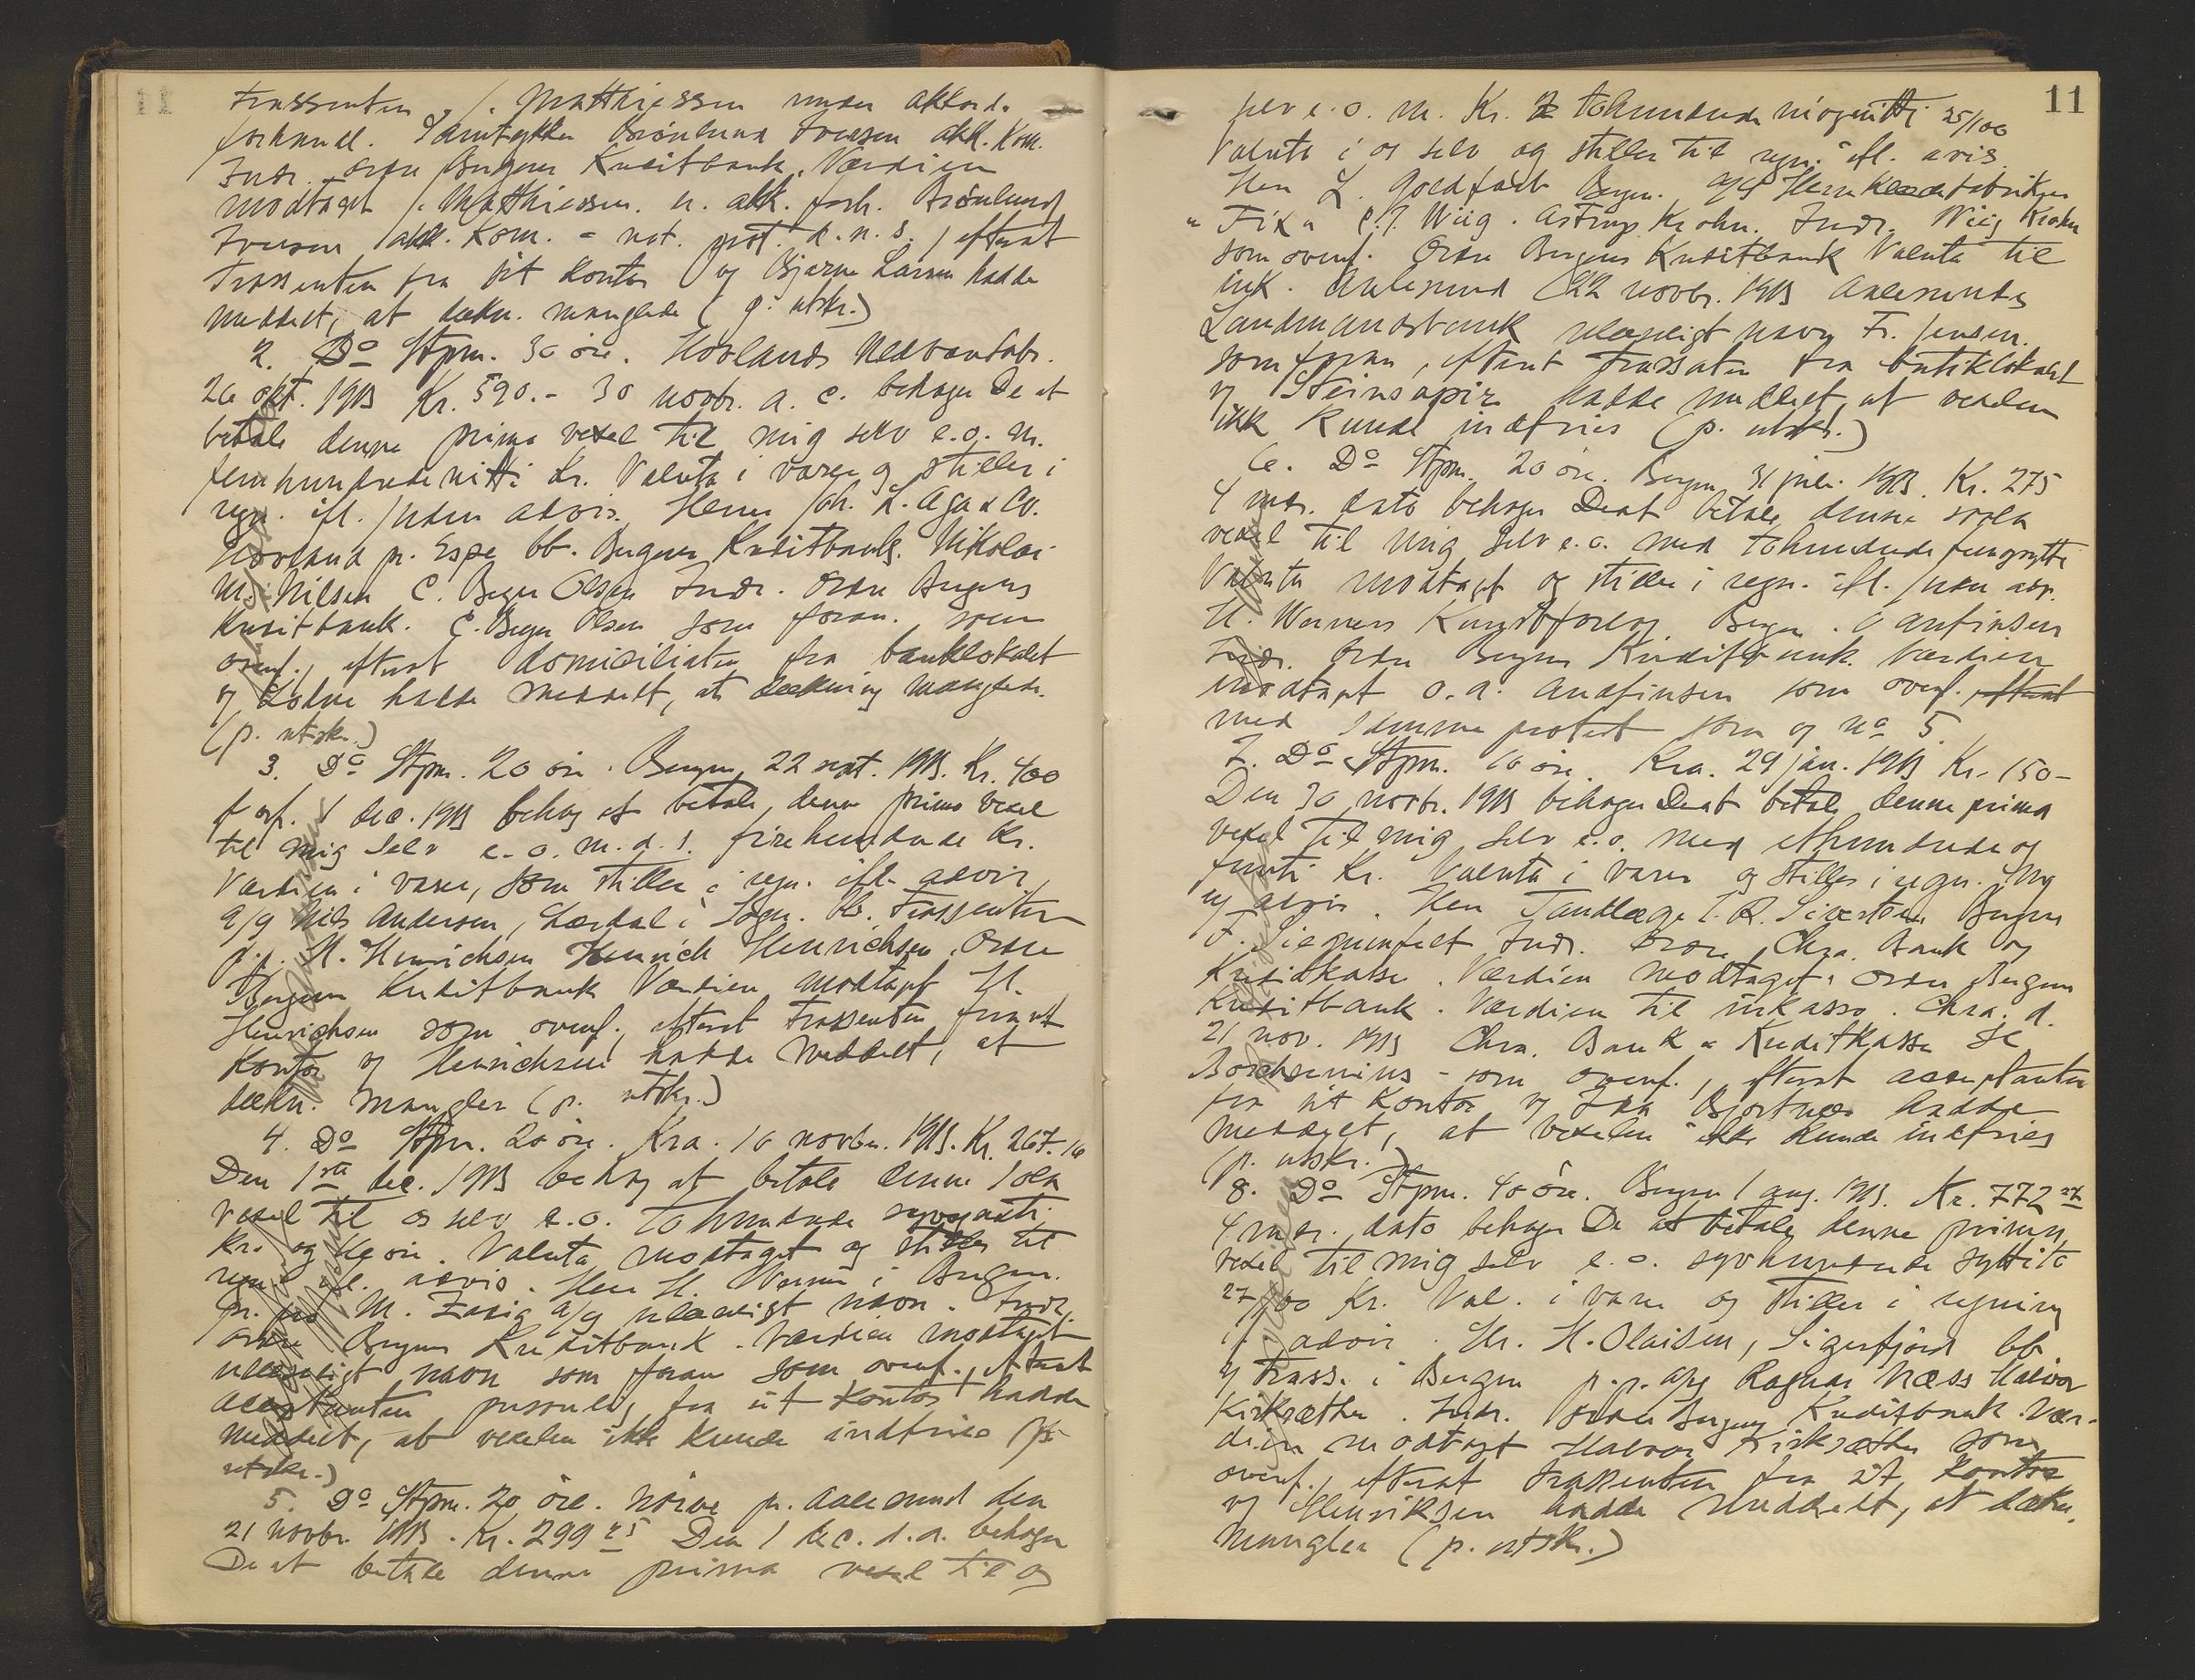 11
Trassenten . J. Matthiessen under akkord.
forhandl. Samtykker Brönlund Iversen akk. Kom.
Indr. ordre Bergens Kreditbank. Værdien
modtaget J. Matthiessen. u. akk. forh. Brönlund
Iversen akk. Kom. = not. prot. d. n. s. / efterat
Trassenten fra sit Kontor og Bjarne Larsen hadde
meddelt, at dækn. manglede ( p. utskr.)
2. Do Stpm. 30 öre. Hovlands Nedvantabr.
26 okt. 1913 Kr. 590.- 30 novbr. a. c. behager De at
betale denne prima vexel til mig selv e. o. m.
femhundrede nitti kr. Valuta i varer og stilles i
regn. ifl. / uden advis. Herrer Joh. L. Aga & Co.
Hovland pr. Espe bb. Bergens Kreditbank. Nikolai
M. Nilsen C. Beyer Olsen Indr. Ordre Bergens
Kreditbank. C. Beyer Olsen som foran. som
ovenf., efterat domiciliaten fra banklokalet
og hadde meddelt, at dækning manglede.
(p. utskr.)
3. Do Stpm. 20 öre. Bergen 22 sept. 1913. Kr. 400
1 dec. 1913 behag at betale denne prima vexel
til mig selv e. o. m. d. s. firehundrede Kr.
Værdien i varer, som stilles i regn. ifl. advis
a/g Nils Andersen, Lærdal i Sogn. Trassenten
p.p. H. Henrichsen Henrich Henrichsen. Ordre
Bergens Kreditbank Værdien modtaget H.
Henrichsen som ovenf., efterat Trassenten fra sit
Kontor og Henrichsen hadde meddelt, at
dækn. mangler (p. utskr.)
4. Do Stpm. 20 öre. Kra. 10 novbr. 1913. Kr. 267.16
Den 1ste dec. 1913 behag at betale denne sola
vexel til os selv e. o. tohundrede syvogsexti
kr. og 16 öre. Valuta modtaget og stilles til
regn. ifl. advis. Herr H. Werner i Bergen.
pr. pro M. Zadig a/g ulæseligt navn. Indr.
ordre Bergens Kreditbank. Værdien modtaget
ulæseligt navn som foran som ovenf., efterat
acceptanten personlig fra sit Kontor hadde
meddelt, at vexelen ikke kunde indfries (p.
utskr.)
5. Do Stpm. 20 öre. Nörve pr. Aalesund den
21 novbr. 1913. Kr. 299 25 Den 1 dec. d. a. behager
De at betale denne prima vexel til os
11
selv e. o. m. Kr. tohundrede niognitti 25/100
Valuta i os selv og stilles til regn. ifl. avis.
Herr L. Goldfarb Bergen. A/S Herreklædefabriken
"Fix" C. J. Wiig. Astrup Krohn. Indr. Wiig Krohn
som ovenf. Ordre Bergens Kreditbank Valuta til
ink. Aalesund 22 novbr. 1913 Aalesunds
Landmandsbank ulæseligt navn Fr. Jensen.
som foran, efterat trassaten fra butiklokalet
og Steinsapir hadde meddelt, at vexelen
ikke kunde indfries (p. utskr.)
6. Do Stpm. 20 öre. Bergen 31 juli 1913. Kr. 275
4 mdr. dato behager De at betale denne sola
vexel til mig selv e. o. med tohundrede femogsytti
Valuta modtaget og stilles i regn. ifl. / uden adv.
H. Werners Kunstforlag Bergen. O Anfinsen
Indr. Ordre Bergens Kreditbank. Værdien
modtaget O. A. Andfinsen som ovenf. efterat
med samme protest som og no 5.
7. Do Stpm. 10 öre. Kra. 29 jan. 1913 Kr. 150-
Den 30 novbr. 1913 behager De at betale denne prima
vexel til mig selv e. o. med ethundrede og
femti Kr. Valuta i varer og stilles i regn.
advis. Herr Tandlæge I. R. Sivertsen Bergen
F. Siegumfeldt Indr. Ordre Chra. Bank og
Kreditkasse. Værdien modtaget. Ordre Bergens
Kreditbank. Værdien til inkasso. Chra. d.
21 nov. 1913 Chra. Bank & Kreditkasse
Borchsenius - som ovenf., efterat acceptanten
fra sit Kontor og hadde
meddelt, at vexelen ikke kunde indfries
(p. utskr.)
8. Do Stpm. 40 öre. Bergen 1 aug. 1913. Kr. 772 27
4 mdr. dato behager De at betale denne prima
vexel til mig selv e. o. syvhundrede syttito
27/100 Kr. Val. i varer og stilles i regning
advis. Hr. H. Olaisen, Sigerfjord bb.
Trass. i Bergen p.p. a/g Ragnar Næss Halvor
Kirksæther. Indr. Ordre Bergens Kreditbank. Vær-
dien modtaget Halvor Kirksæther som
ovenf., efterat trassenten fra sit Kontor
og Henriksen hadde meddelt, at dækn.
mangler (p. utskr.)